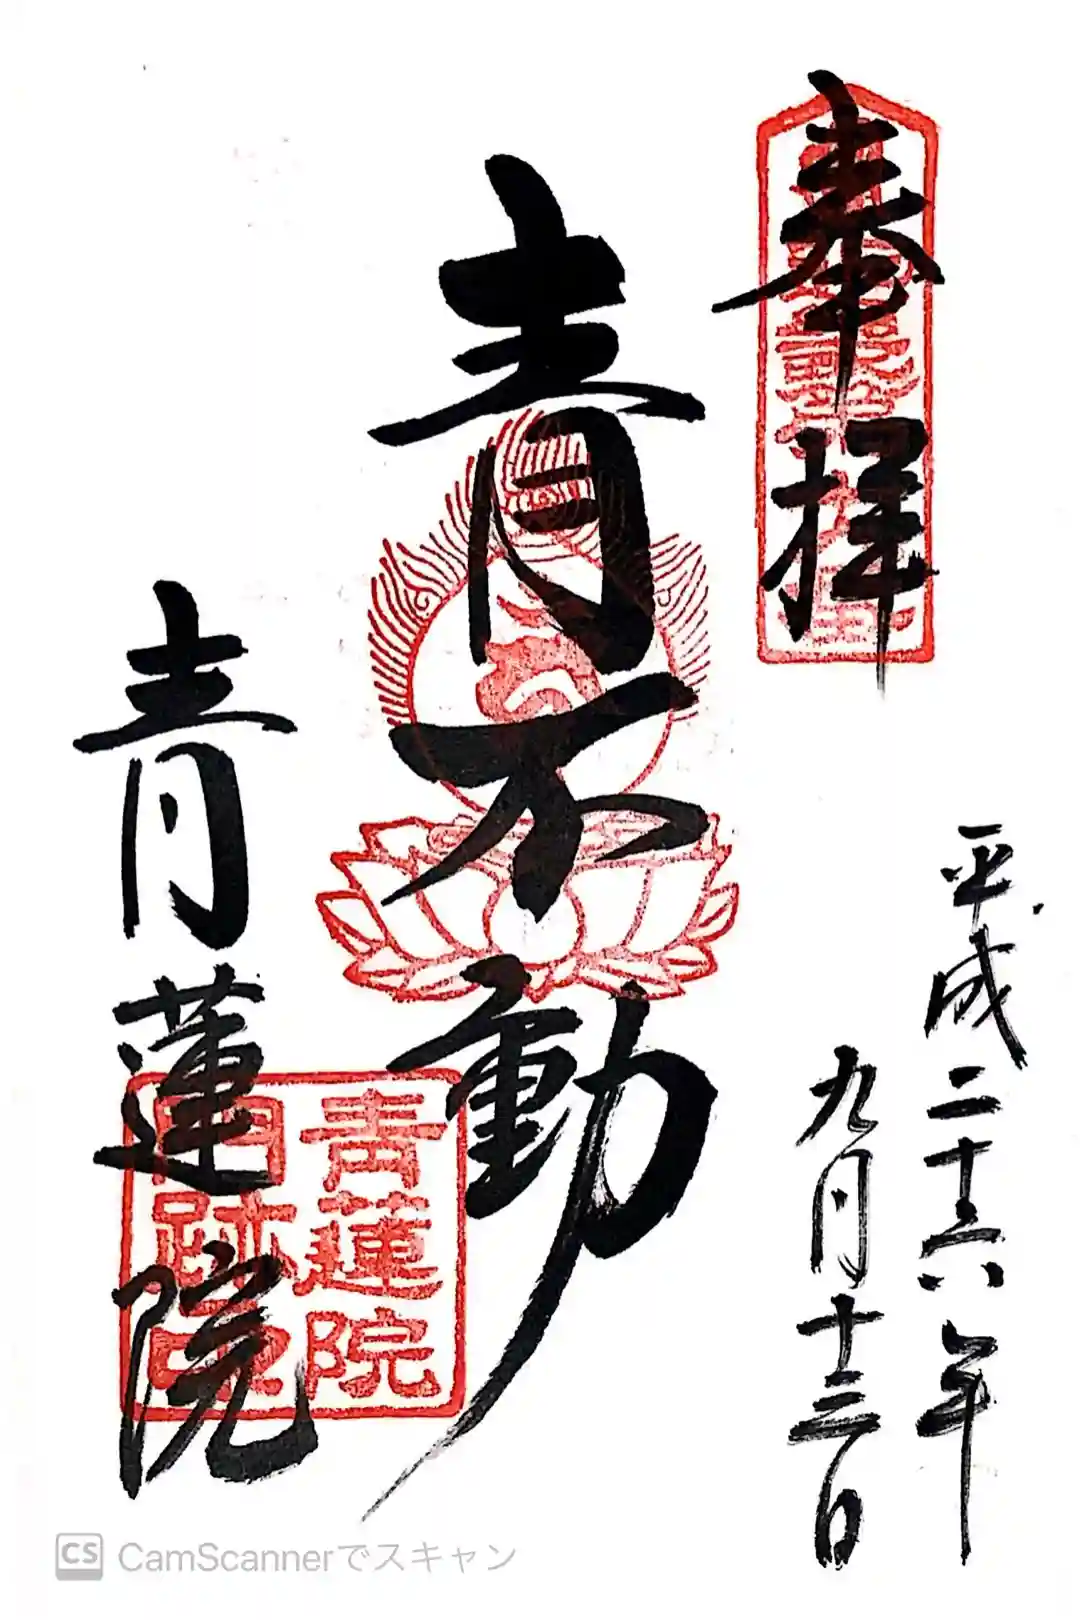 奉拝
平成二十六年
九月十三日
青不動
青蓮院
青蓮院
門跡印
CamScannerでスキャン